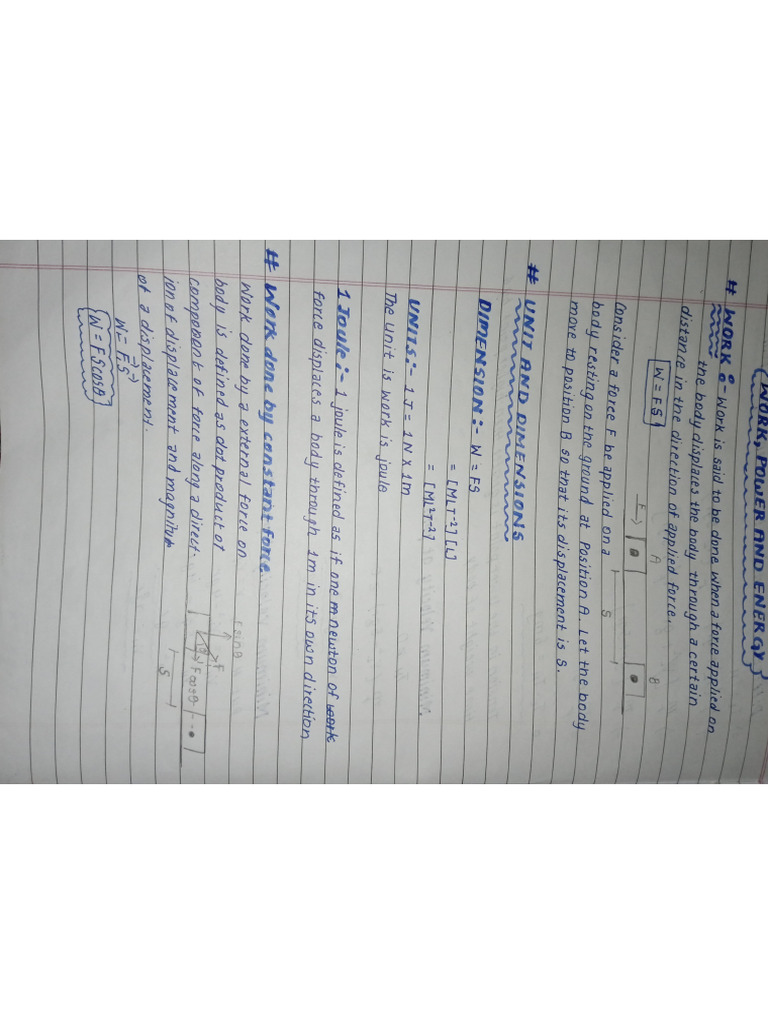 (WORK, POWER AND ENERGY)
# WORK :- Work is said to be done when a force applied on
the body displaces the body through a certain
distance in the direction of applied force.
W = FS
A B
F
S
Consider a force F be applied on a
body resting on the ground at Position A. Let the body
move to position B so that its displacement is S.
# UNIT AND DIMENSIONS
DIMENSION :- W = FS
= [MLT⁻²] [L]
= [ML²T⁻²]
UNITS :- 1 J = 1N X 1m
The Unit is work is joule
1 Joule :- 1 joule is defined as if one newton of work
force displaces a body through 1m in its own direction
# Work done by constant force
Work done by a external force on
body is defined as dot product of
component of force along a direct-
ion of displacement and magnitude
of a displacement.
F sinθ
F
θ
F cosθ
S
W = F⃗S⃗
W = FS cosθ